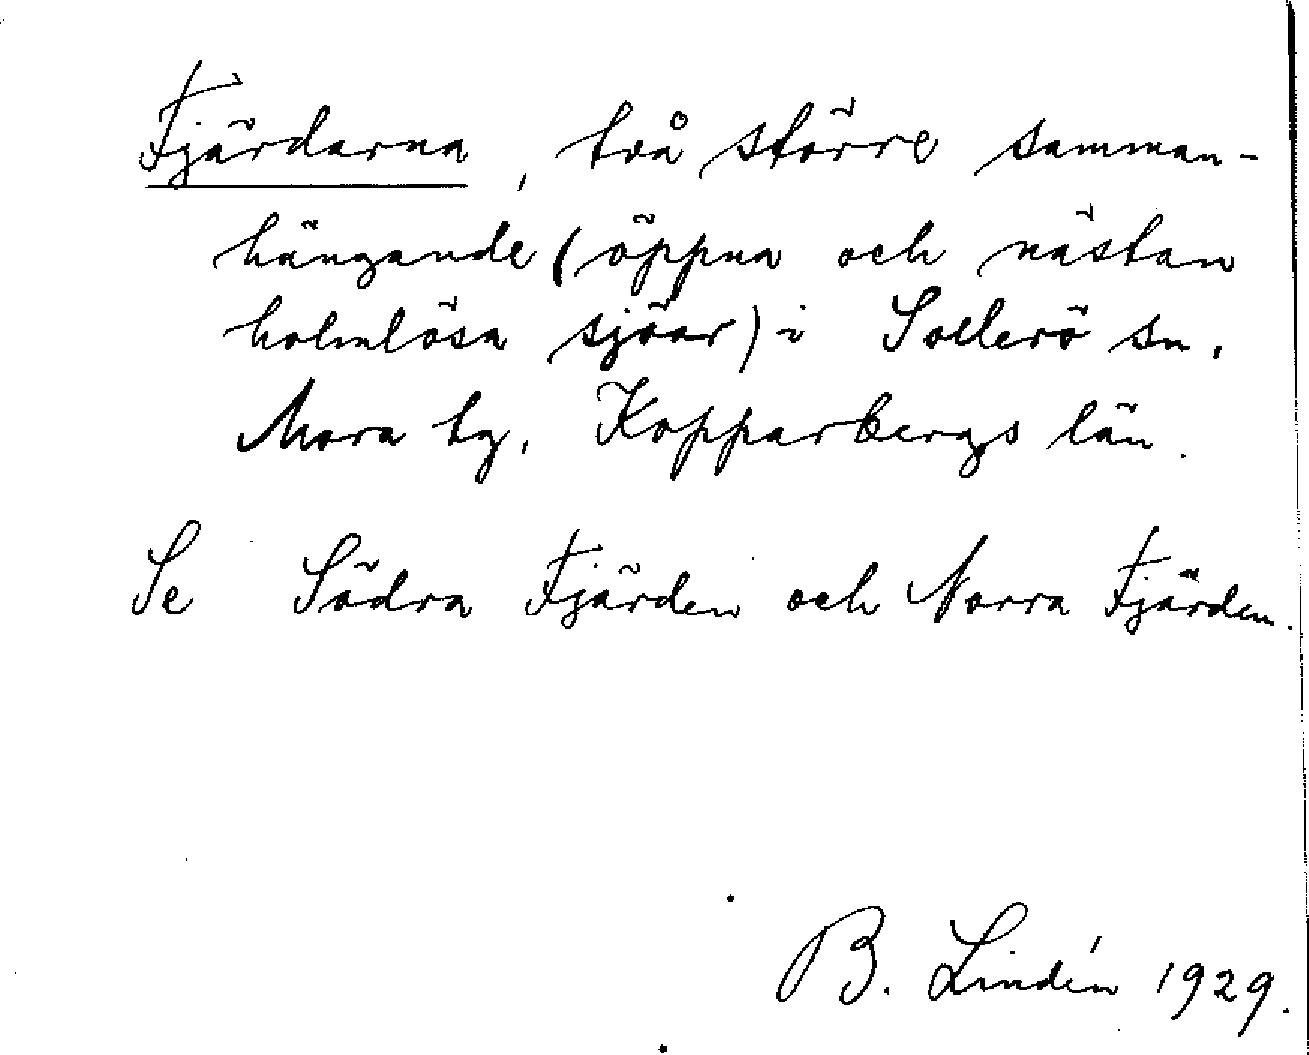 Fjärdarna, två större samman-
hängande (öppna och nästan
holmlösa sjöar) i Sollerö sn,
Mora tg, Kopparbergs län.
Se Södra Fjärden och Norra Fjärden.
B. Lindén 1929.